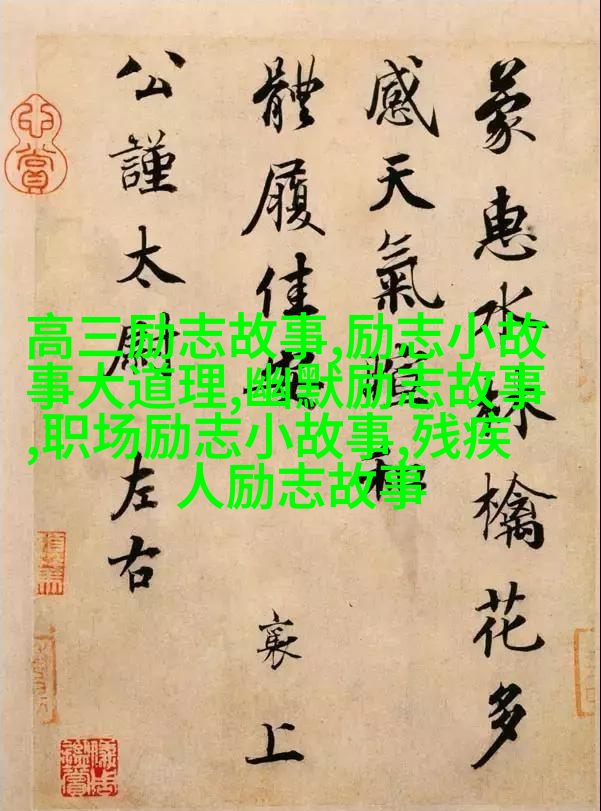 高三励志故事,励志小故
事大道理,幽默励志故事
,职场励志小故事,残疾
人励志故事
蒙惠水林檎花多
感天氣
體履佳
襄上
公謹太尉左右
心賞